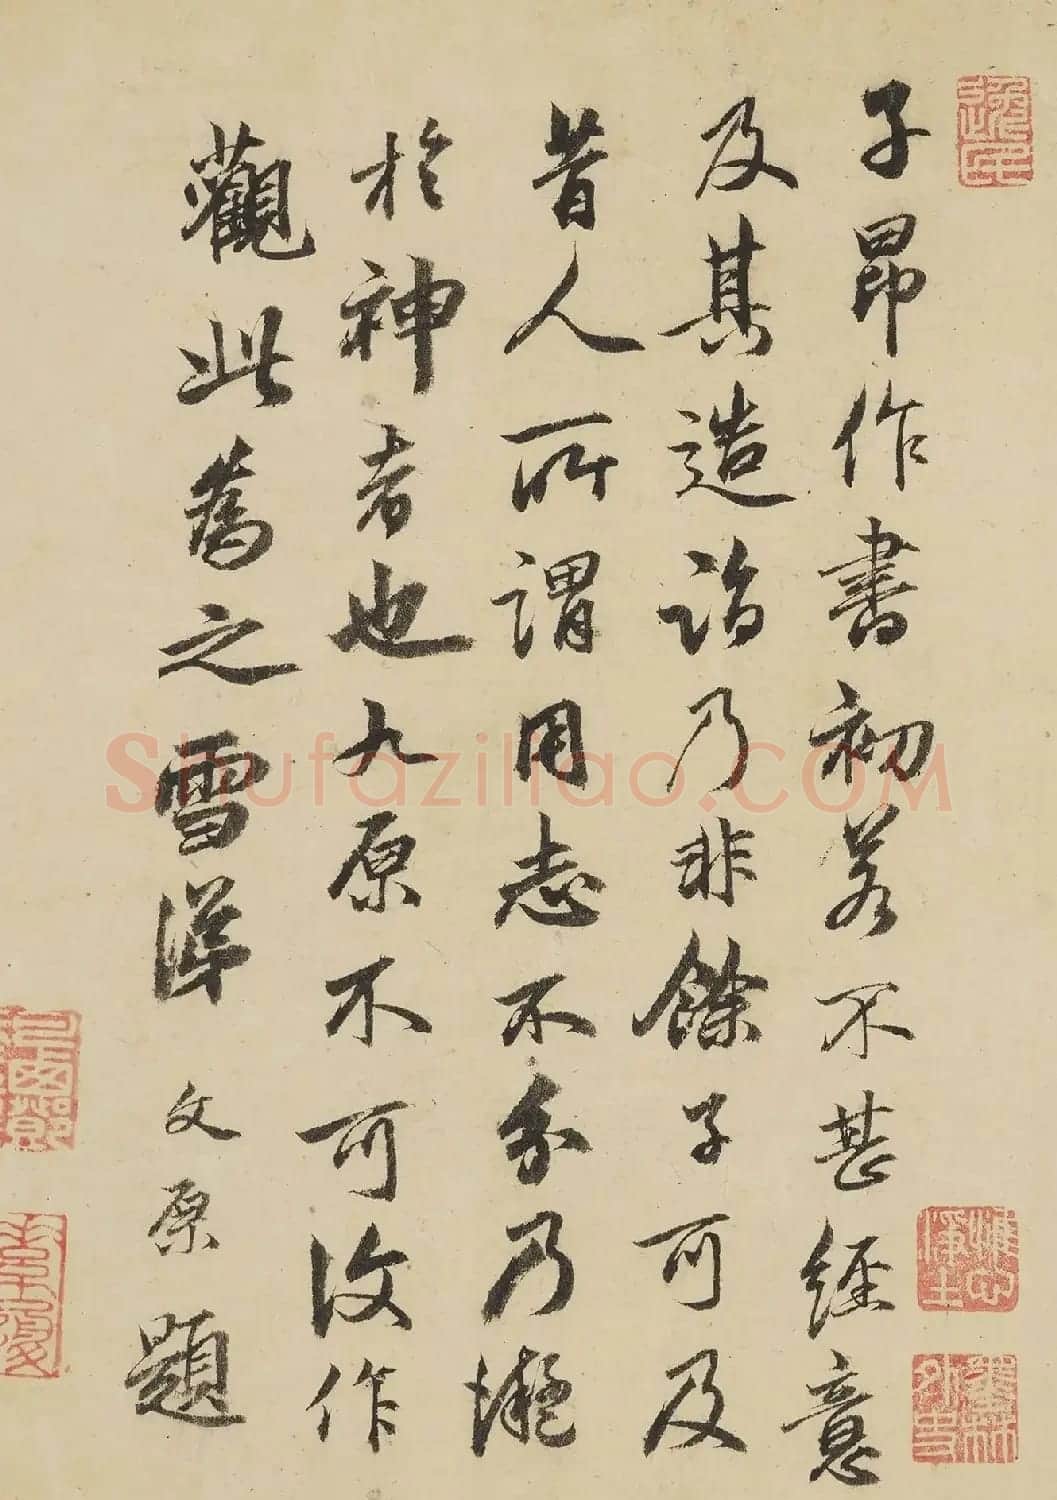 子昂作書初若不甚經意
及其造詣乃非餘子可及
昔人所謂用志不分乃凝
於神者也九原不可復作
觀此為之雪涕
文原題
shufaziliao.com